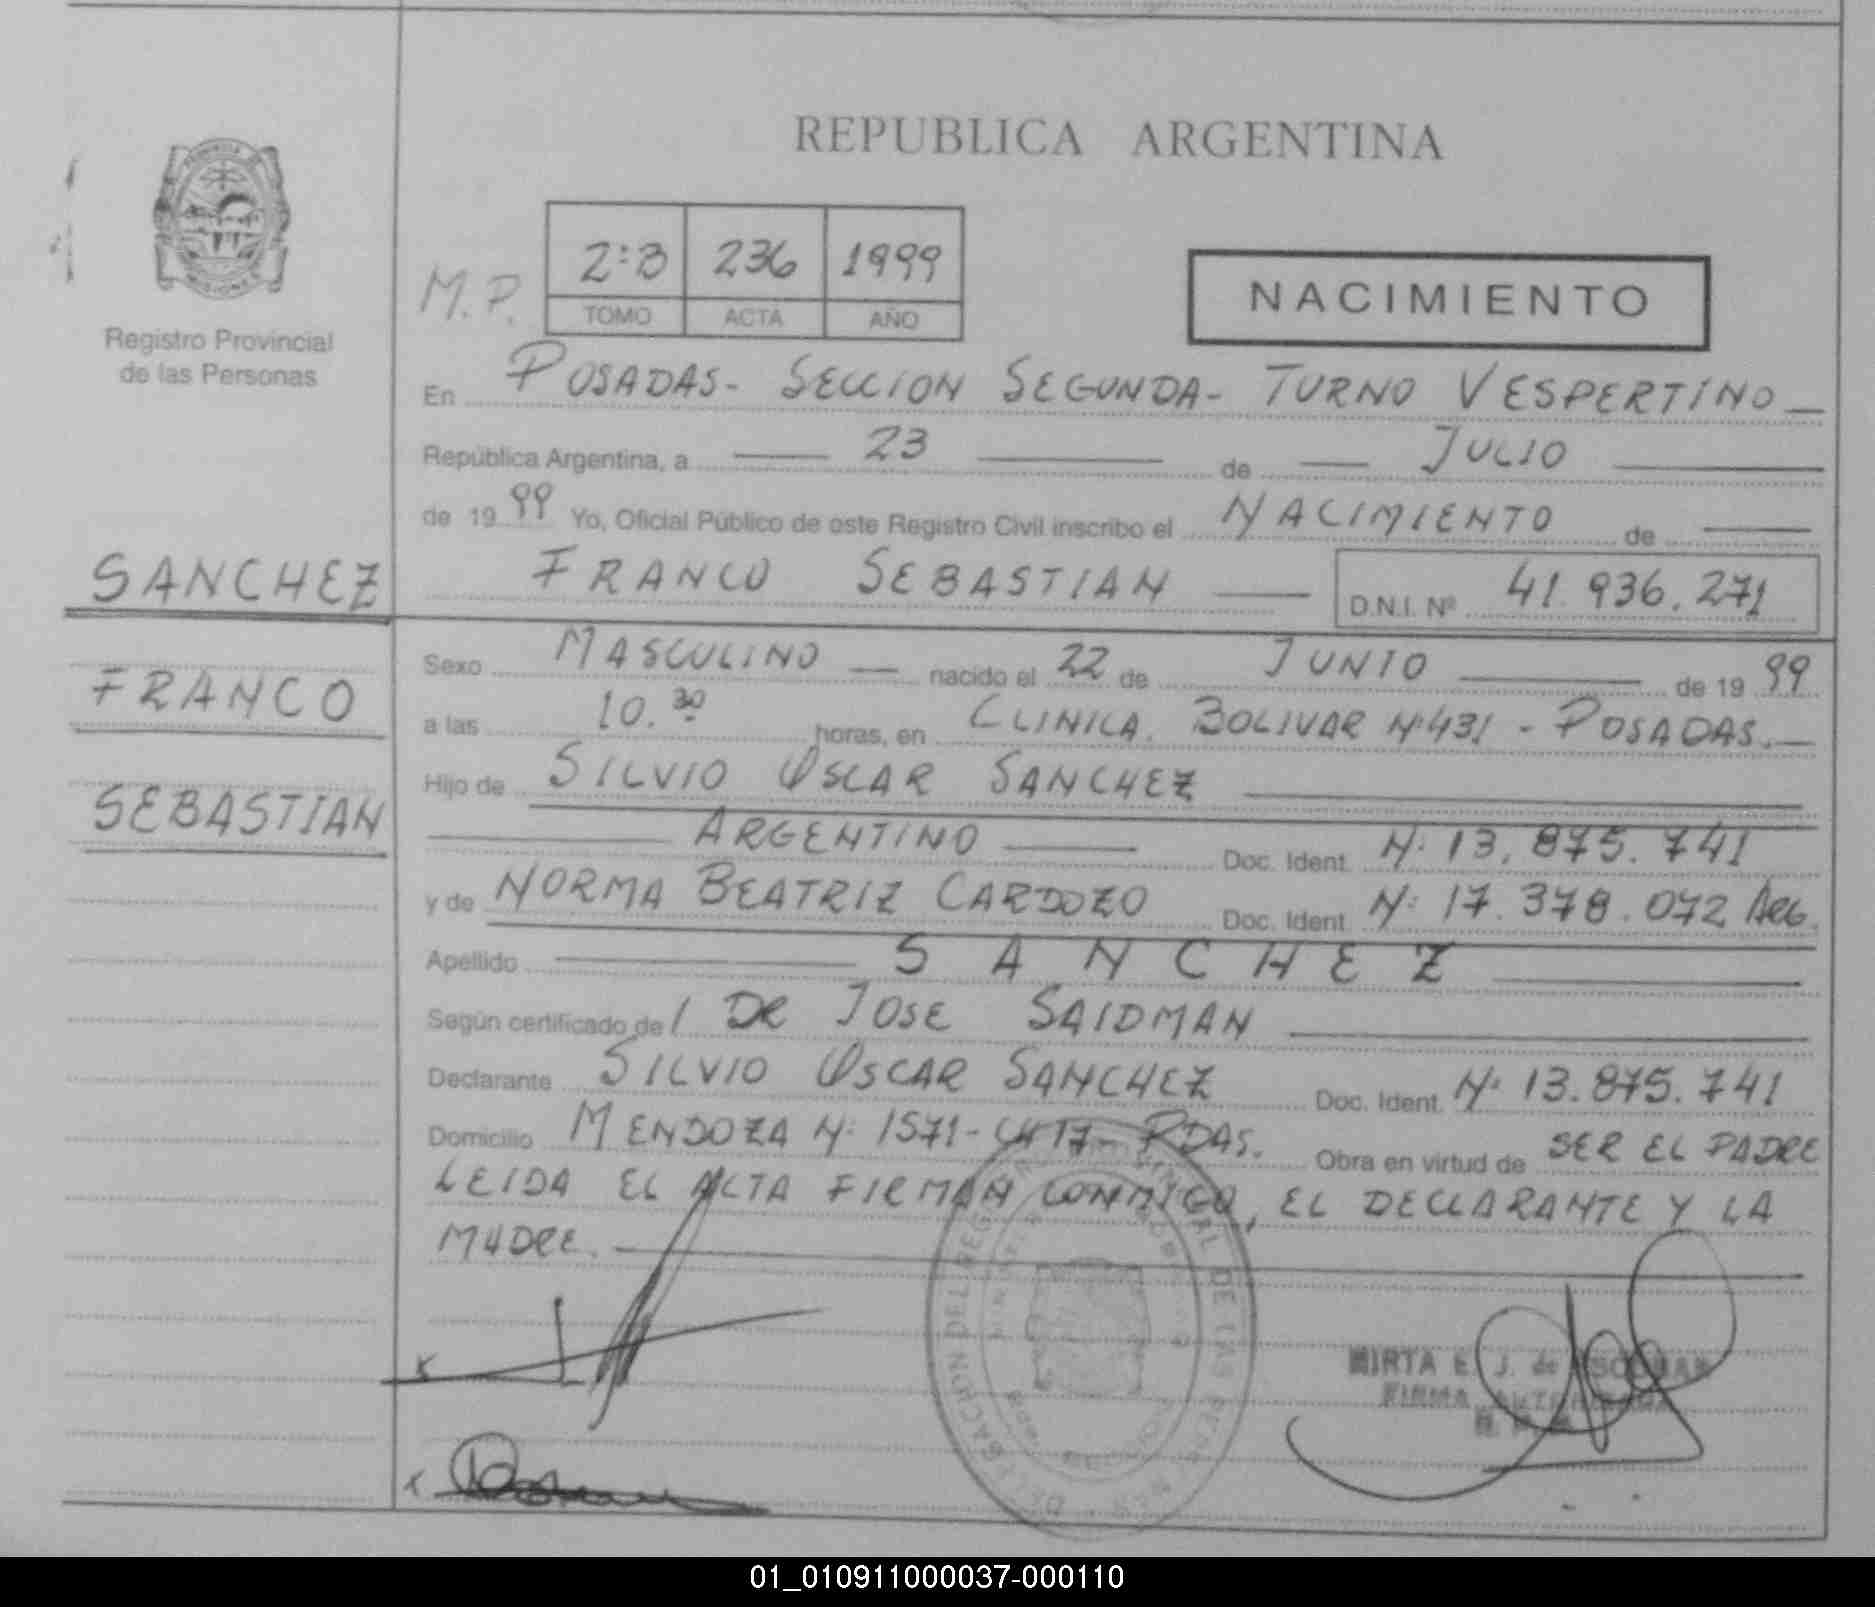 REPUBLICA ARGENTINA
PROVINCIA DE
MISIONES
Registro Provincial
de las Personas
M.P.
2:B 236 1999
TOMO ACTA AÑO
NACIMIENTO
En POSADAS- SECCION SEGUNDA- TURNO VESPERTINO
República Argentina, a 23 de JULIO
de 1999 Yo, Oficial Público de este Registro Civil inscribo el NACIMIENTO de
SANCHEZ
FRANCO SEBASTIAN D.N.I. Nº 41.936.271
Sexo MASCULINO nacido el 22 de JUNIO de 1999
FRANCO
a las 10.30 horas, en CLINICA. BOLIVAR Nº431 - POSADAS.
Hijo de SILVIO OSCAR SANCHEZ
SEBASTIAN
ARGENTINO Doc. Ident. Nº 13.875.741
y de NORMA BEATRIZ CARDOZO Doc. Ident. Nº 17.378.072 ARG.
Apellido SANCHEZ
Según certificado de DR JOSE SAIDMAN
Declarante SILVIO OSCAR SANCHEZ Doc. Ident. Nº 13.875.741
Domicilio MENDOZA Nº 1571- PDAS. Obra en virtud de SER EL PADRE
LEIDA EL ACTA FIRMAN CONMIGO, EL DECLARANTE Y LA
MADRE.
MIRTA E. J. de ESCOBAR
FIRMA AUTORIZADA
01_010911000037-000110